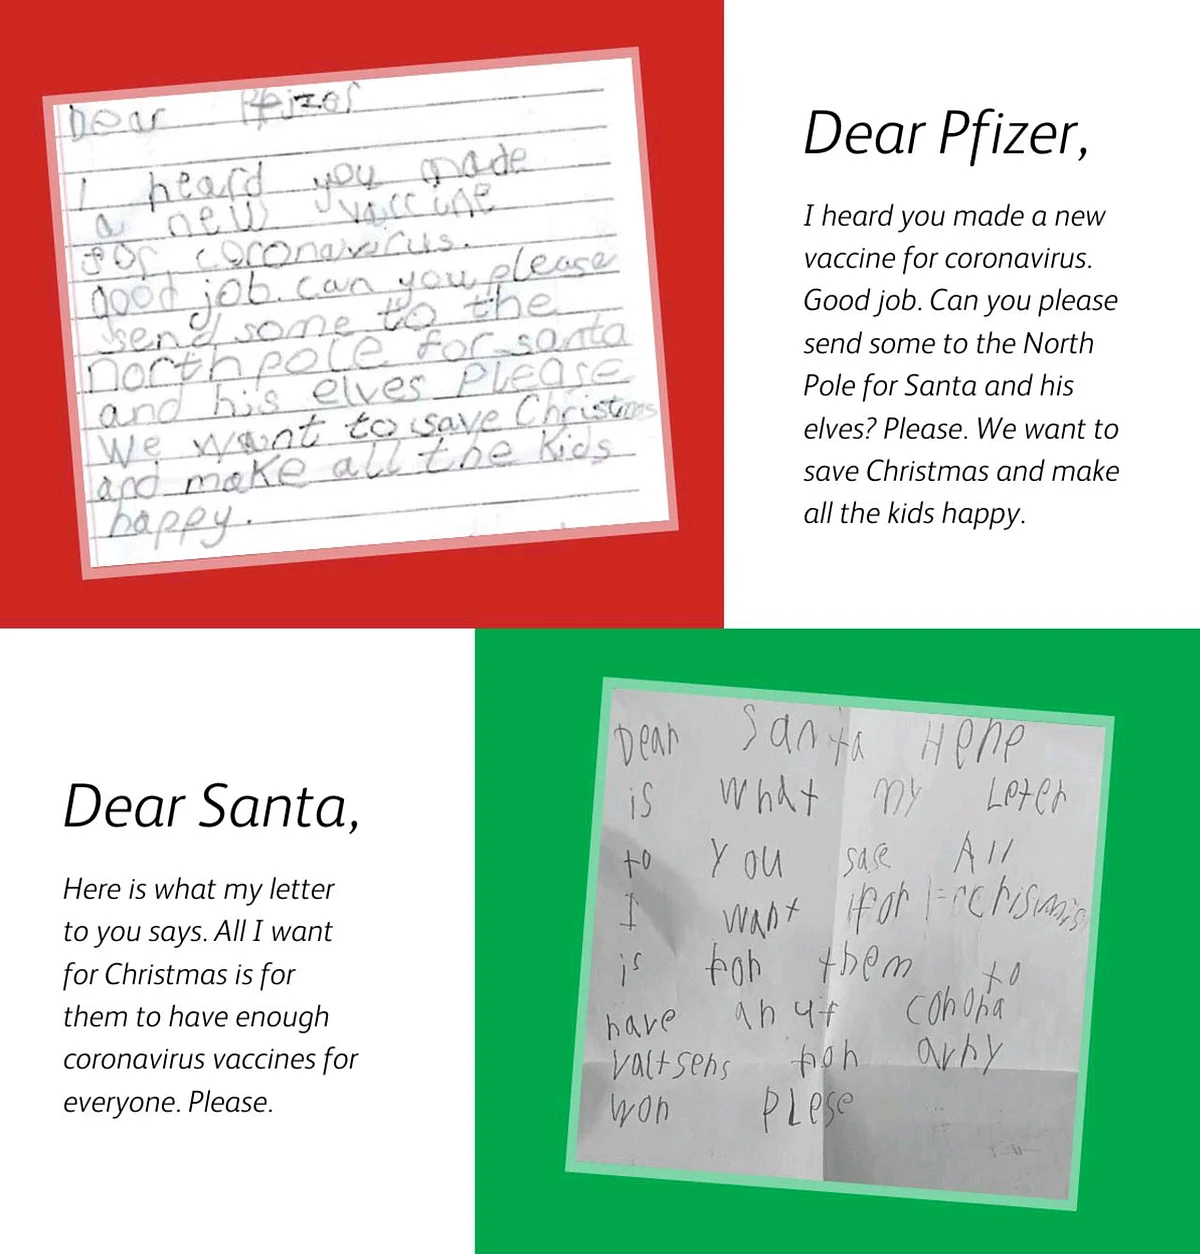 Dear Pfizer
I heard you made
a new vaccine
for coronavirus.
good job. can you please
send some to the
north pole for santa
and his elves please
we want to save Christmas
and make all the kids
happy.
Dear Pfizer,
I heard you made a new
vaccine for coronavirus.
Good job. Can you please
send some to the North
Pole for Santa and his
elves? Please. We want to
save Christmas and make
all the kids happy.
Dear Santa,
Here is what my letter
to you says. All I want
for Christmas is for
them to have enough
coronavirus vaccines for
everyone. Please.
Dear Santa Here
is what my Leter
to you sase All
I want for chrisimis
is for them to
have anuf corona
valtsens for avry
won PLese